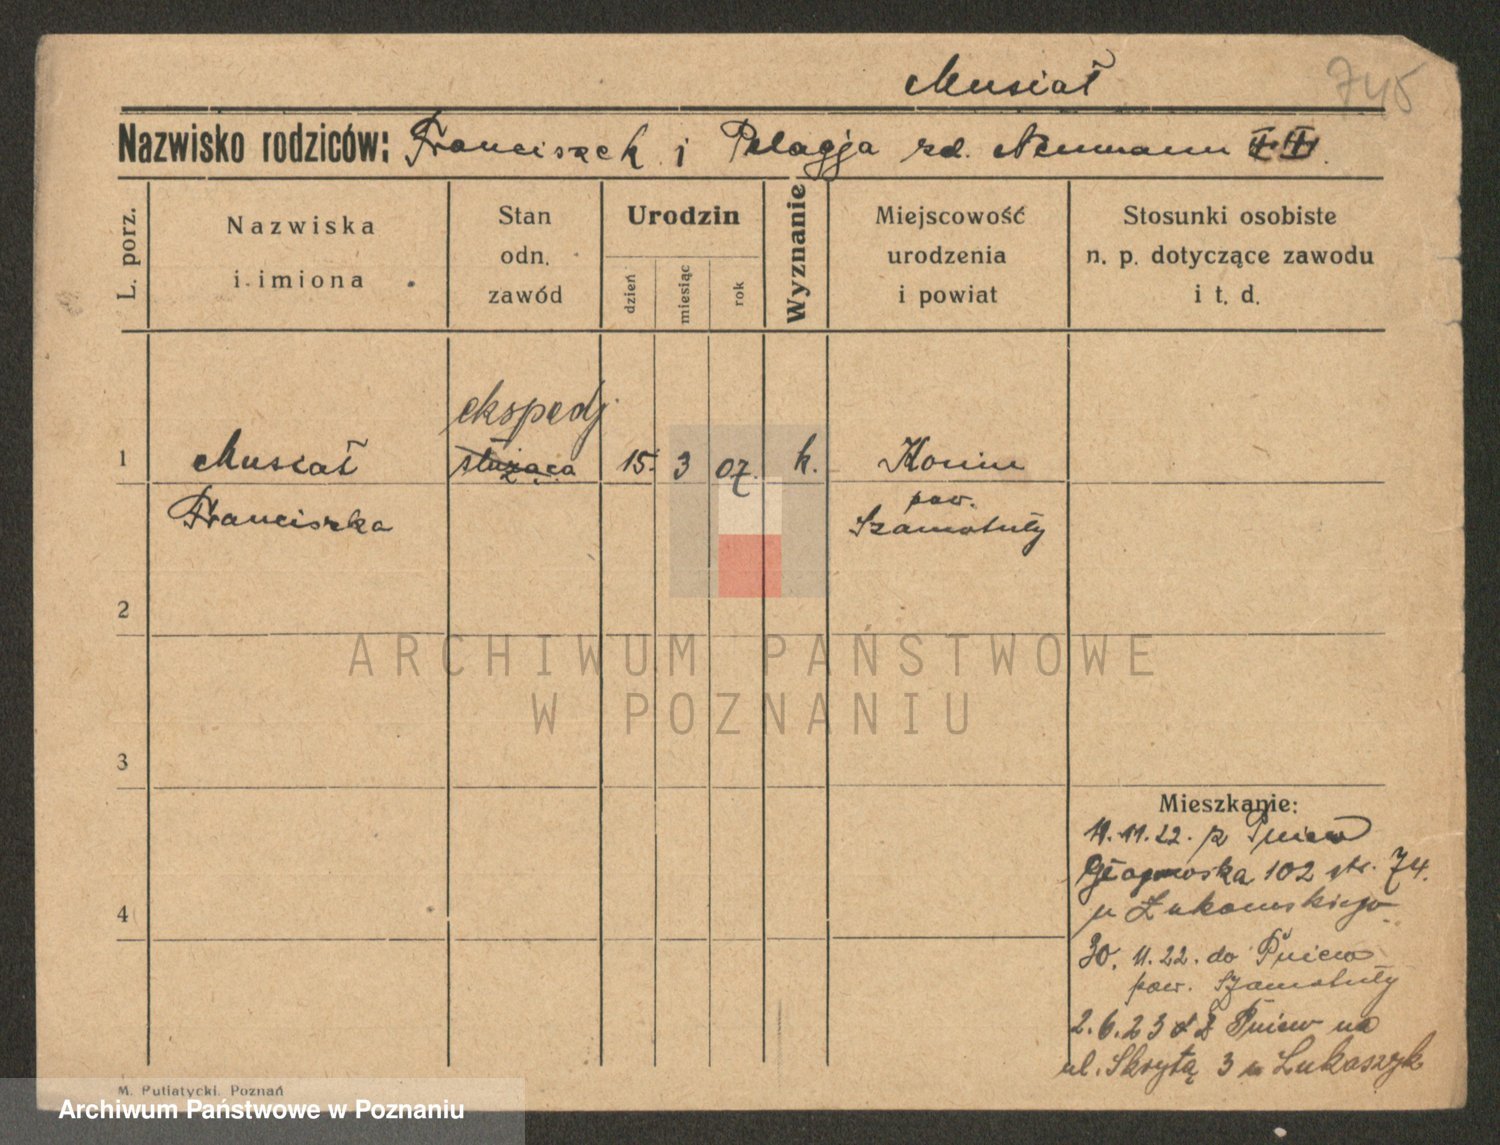 Musiał
745
Nazwisko rodziców: Franciszek i Pelagja zd. Neumann
L. porz.
Nazwiska
i imiona
Stan
odn.
zawód
Urodzin
dzień
miesiąc
rok
Wyznanie
Miejscowość
urodzenia
i powiat
Stosunki osobiste
n. p. dotyczące zawodu
i t. d.
ekspedj
1 Musiał służąca 15. 3 07. k. Konin
Franciszka
pow.
Szamotuły
2
ARCHIWUM PAŃSTWOWE
W POZNANIU
3
Mieszkanie:
11.11.22. z Pniew
102 str. 74.
u Łukowskiego
4
30. 11.22. do Pniew
pow. Szamotuły
2.6.23 z Pniew na
ul. Skrytą 3 u Łukaszyk
M. Putiatycki, Poznań
Archiwum Państwowe w Poznaniu